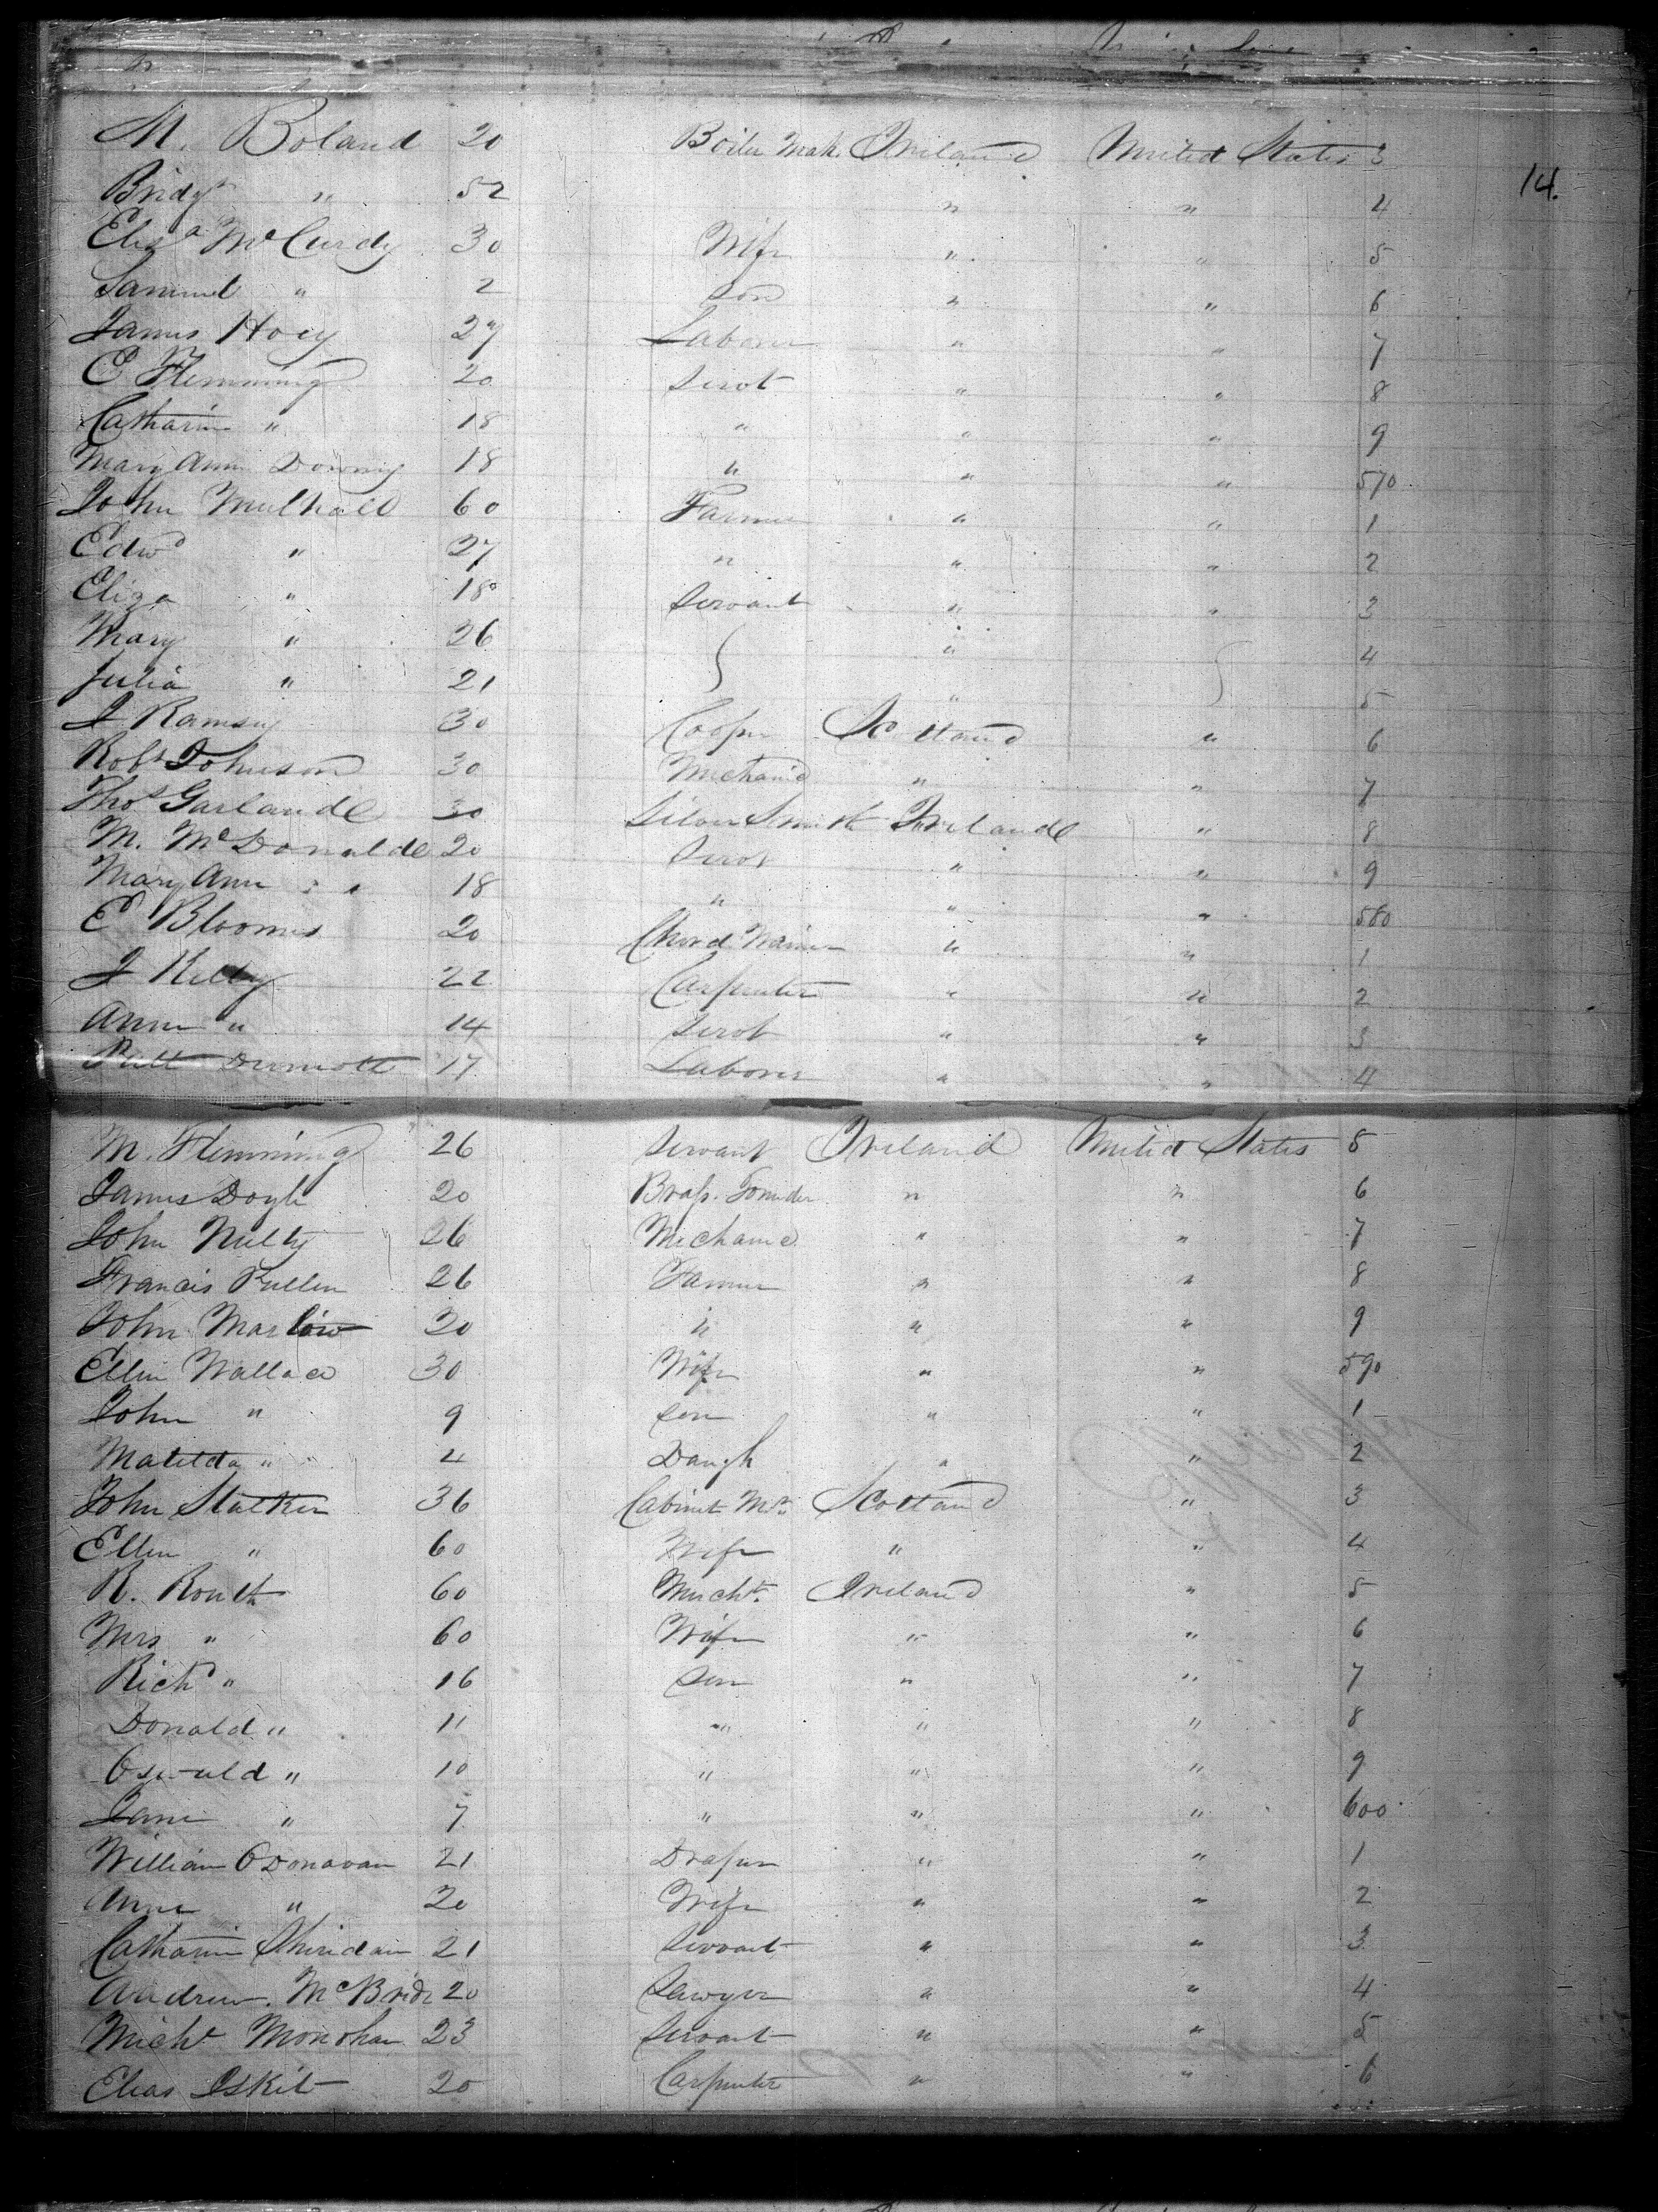 M. Boland 20 Boiler Mak. Ireland United States 3
14.
Bridgt " 52 " " 4
Elisa McCurdy 30 Wife " " 5
Samuel " 2 Son " " 6
James Hoey 27 Laborer " " 7
E Flemming 20 Servt " " 8
Catharine " 18 " " " 9
Mary Ann Downey 18 " " " 570
John Mulhall 60 Farmer " " 1
Edwd " 27 " " " 2
Eliza " 18 Servant " " 3
Mary " 26 " 4
Julia " 21 " 5
J Ramsey 30 Cooper Scotland " 6
Robt Johnson 30 Mechanic " " 7
Thos Garland 30 Silver Smith Ireland " 8
M. McDonald 20 Servt " " 9
Mary Ann " 18 " " " 580
E Bloomer 20 Chord Wainer " " 1
J Kelly 22 Carpenter " " 2
Anne " 14 Servt " " 3
Patt Dermott 17 Laborer " " 4
M. Flemming 26 Servant Ireland United States 5
James Doyle 20 Brass Founder " " 6
John Nulty 26 Mechanic " " 7
Francis Pullen 26 Farmer " " 8
John Marlow 20 " " " 9
Ellen Wallace 30 Wife " " 590
John " 9 Son " " 1
Matilda " 4 Daugh " " 2
John Stalker 36 Cabinet Mr. Scotland " 3
Ellen " 60 Wife " " 4
R. Roulth 60 Mercht. Ireland " 5
Mrs " 60 Wife " " 6
Richd " 16 Son " " 7
Donald " 11 " " " 8
Oswald " 10 " " " 9
Jane " 7 " " " 600
William ODonavan 21 Draper " " 1
Anne " 20 Wife " " 2
Catharine Sheridan 21 Servant " " 3
Andrew. McBride 20 Sawyer " " 4
Michl Monohan 23 Servant " " 5
Elias Eskit 20 Carpenter " " 6